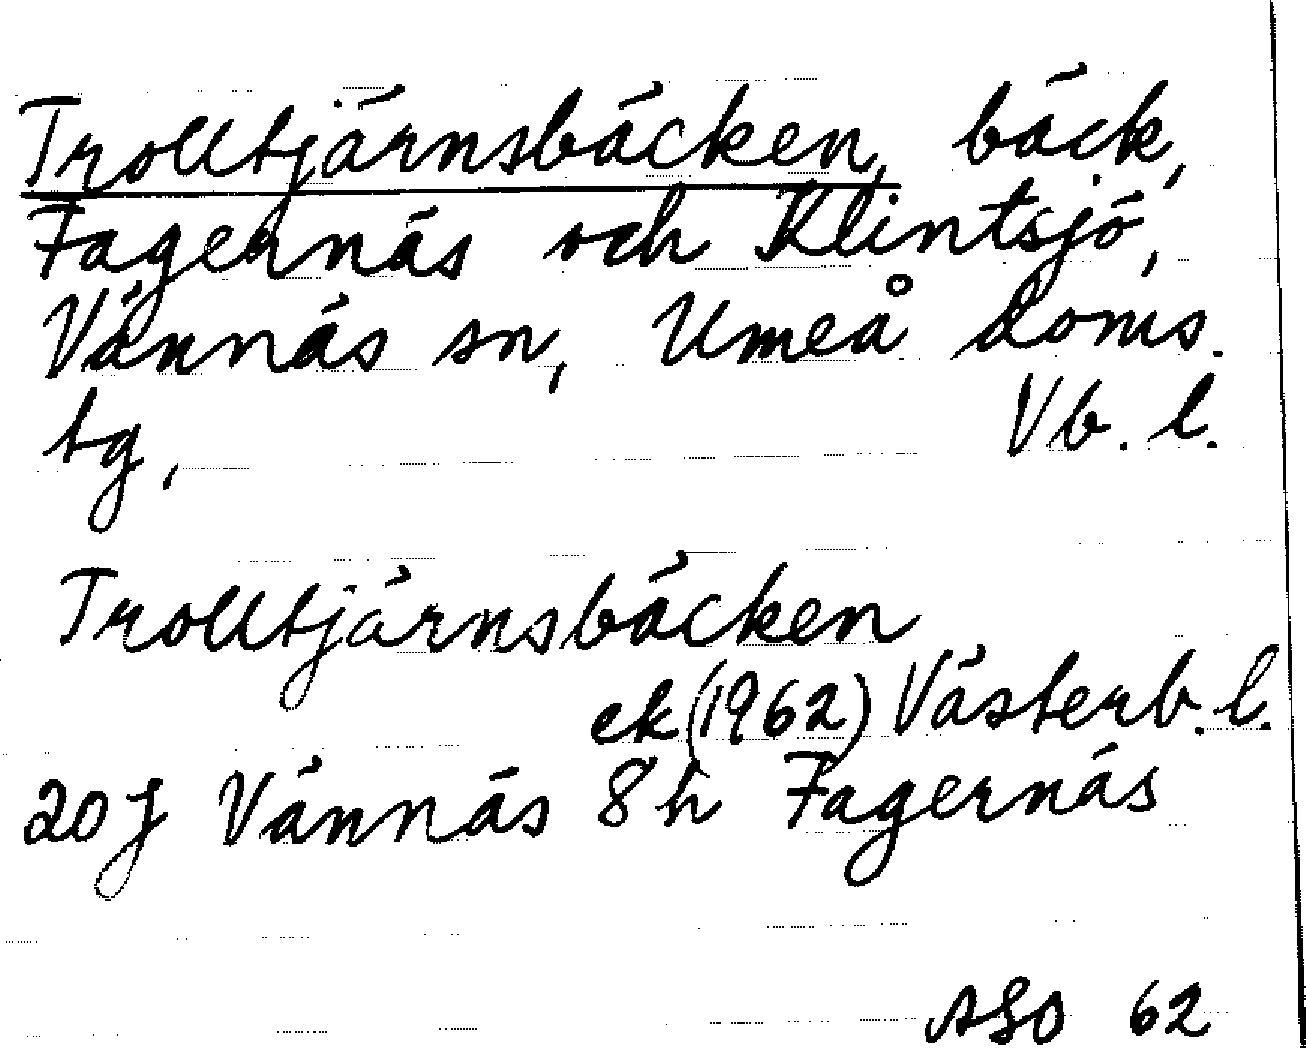 Trolltjärnsbäcken, bäck,
Fagernäs och Klintsjö,
Vännäs sn, Umeå doms.
tg, Vb. l.
Trolltjärnsbäcken
ek (1962) Västerb. l.
20J Vännäs 8h Fagernäs
ASO 62